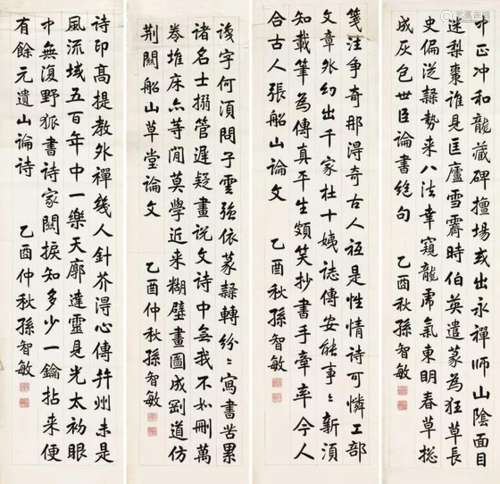 中正冲和龍藏碑擅場或出永禪師山陰面目
迷梨棗誰見匡廬雪霽時伯英遺篆為狂草長
史偏從隸勢來八法幸窺龍虎氣東明春草總
成灰包世臣論書絕句 乙酉秋孫智敏
箋注爭奇那得奇古人祗是性情詩可憐工部
文章外幻出千家杜十姨誌傳安能事〻新須
知載筆為傳真平生頗笑抄書手牽率今人
合古人張船山論文 乙酉秋孫智敏
字何須問子雲強依篆隸轉紛〻寫書苦累
諸名士搦管遲疑畫說文詩中無我不如刪萬
卷堆床亦等閒莫學近來糊壁畫圖成剛道仿
荊關船山草堂論文 乙酉仲秋孫智敏
詩印高提教外禪幾人針芥得心傳并州未是
風流域五百年中一樂天廓達靈見光太初眼
中無復野狐書詩家關捩知多少一鑰拈來便
有餘元遺山論詩 乙酉仲秋孫智敏